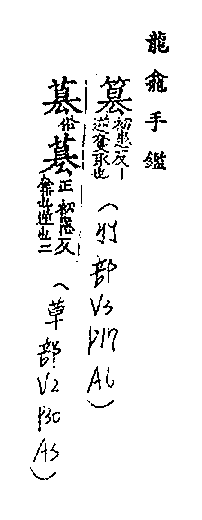 龍龕手鑑
篡初患反丨
逆奪取也
(竹部 V3 P17 A6)
俗
正初患反
奪也逆也二
(草部 V2 P30 A3)